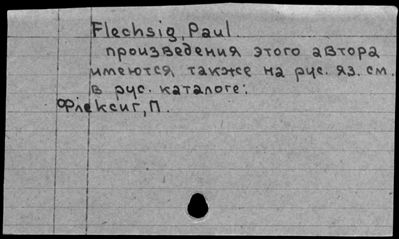 Flechsig, Paul
произведения этого автора
имеются также на рус. яз. см.
в рус. каталоге:
Флексиг, П.